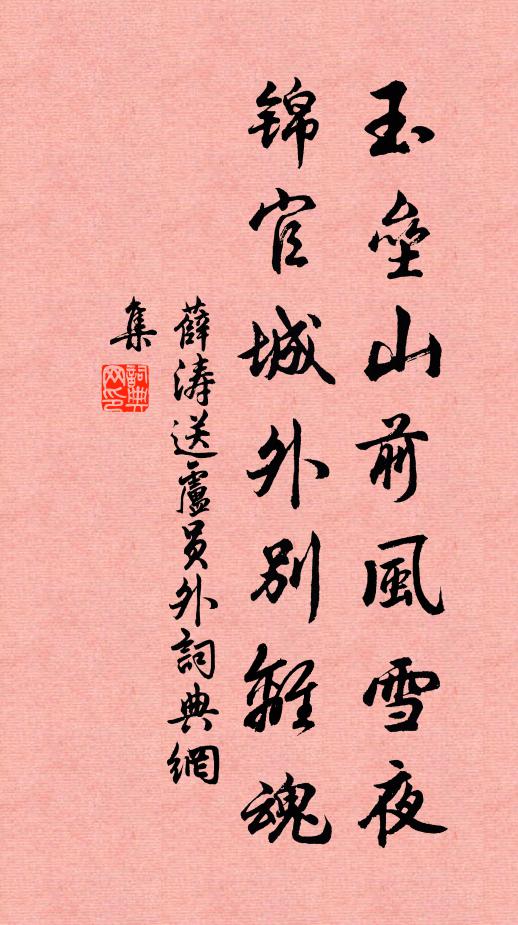 玉壘山前風雪夜
錦官城外別離魂
薛濤送盧員外詞典網
集
詞典
网印